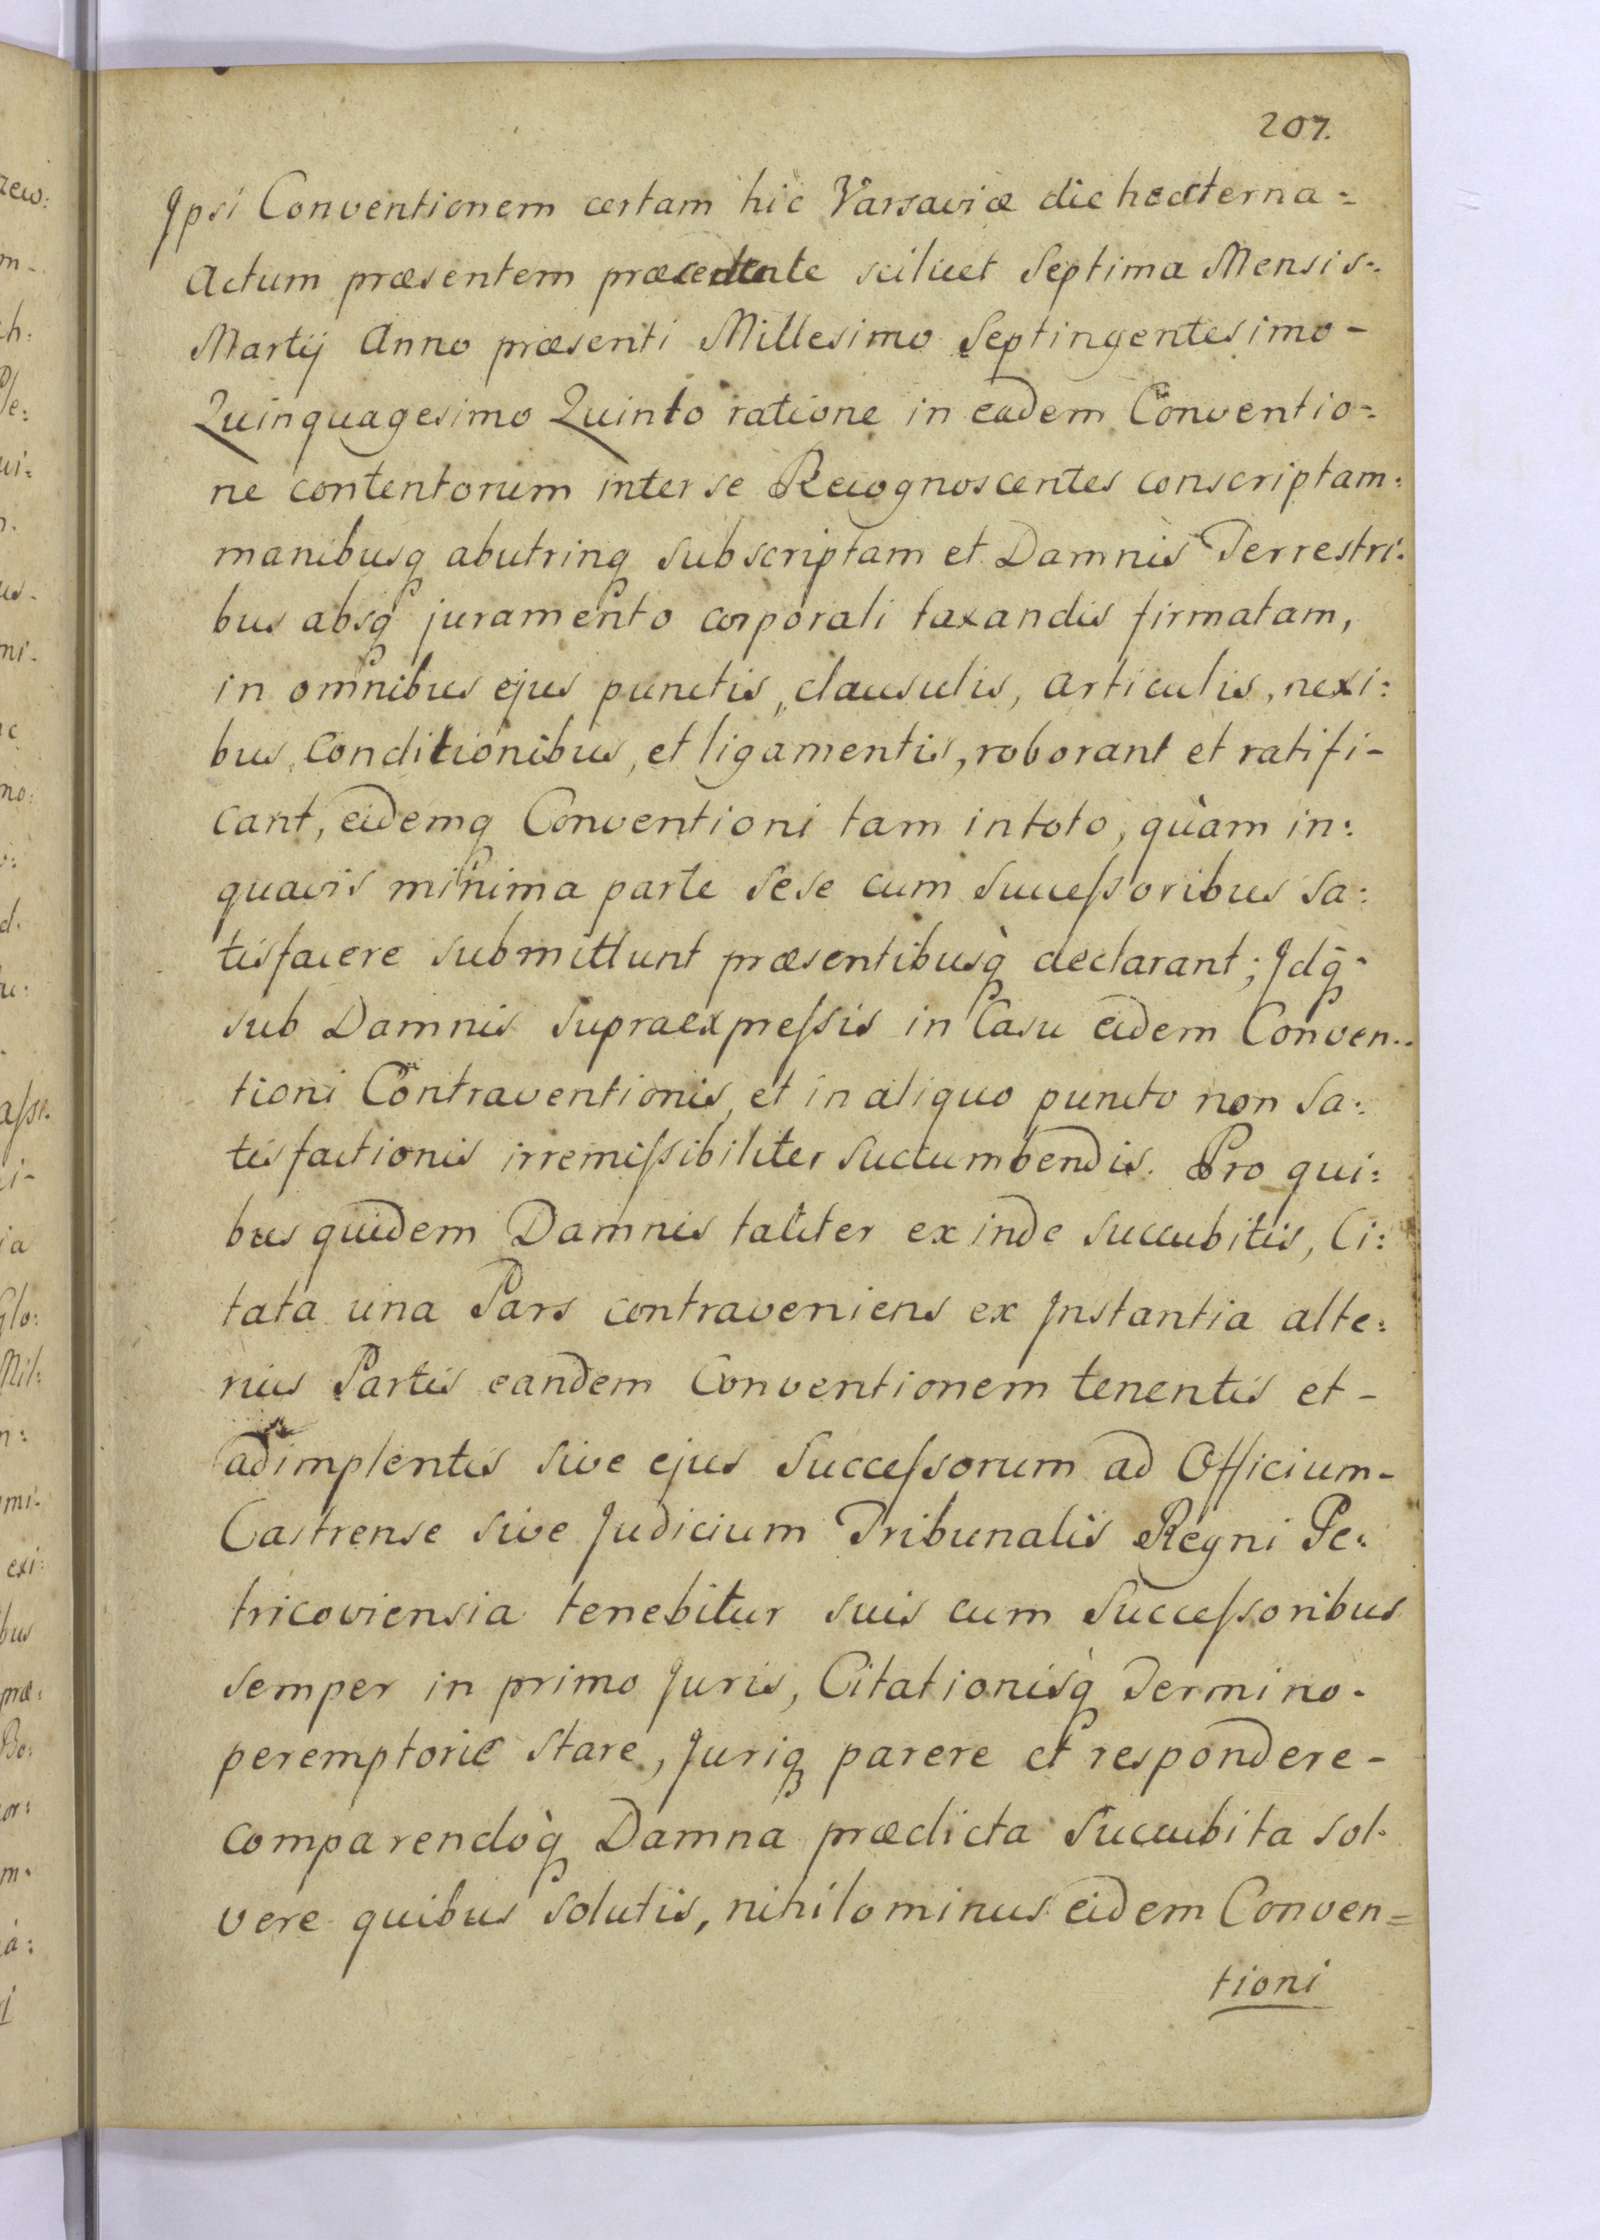 207.
Ipsi Conventionem certam hic Varsaviæ die hesterna=
Actum præsentem præcedente scilicet Septima Mensis=
Martij Anno præsenti Millesimo Septingentesimo-
Quinquagesimo Quinto ratione in eadem Conventio=
ne contentorum inter se Recognoscentes conscriptam:
manibusq abutrinq subscriptam et Damnis Terrestri:
bus absq juramento corporali taxandis firmatam,
in omnibus ejus punctis, clausulis, articulis, nexi:
bus, Conditionibus, et ligamentis, roborant et ratifi-
cant, eidemq Conventioni tam in toto, quàm in:
quavis minima parte sese cum Succeſsoribus Sa:
tisfacere submittunt præsentibusq̀ declarant; Idq̀-
sub Damnis supraexpreſsis in Casu eidem Conven..
tioni Contraventionis, et in aliquo puncto non Sa:
tisfactionis irremiſsibiliter succumbendis. Pro qui:
bus quidem Damnis taliter exinde succubitis, Ci:
tata una Pars contraveniens ex Instantia alte:
rius Partis eandem Conventionem tenentis et-
adimplentis sive ejus Succeſsorum ad Officium-
Castrense sive Judicium Tribunalis Regni Pe:
tricoviensia tenebitur suis cum Succeſsoribus
semper in primo Juris, Citationisq̀ Termino-
peremptorie stare, Juriq parere et respondere-
comparendoq̀ Damna prædicta Succubita sol-
vere quibus solutis, nihilominus eidem Conven=
tioni